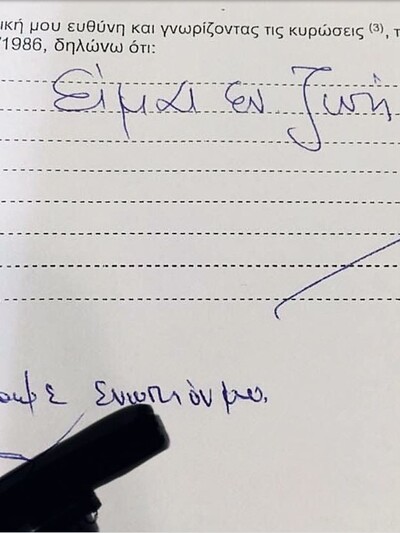 ική μου ευθύνη και γνωρίζοντας τις κυρώσεις (3), τ
/1986, δηλώνω ότι:
Είμαι εν ζωή
ενωπιόν μου.